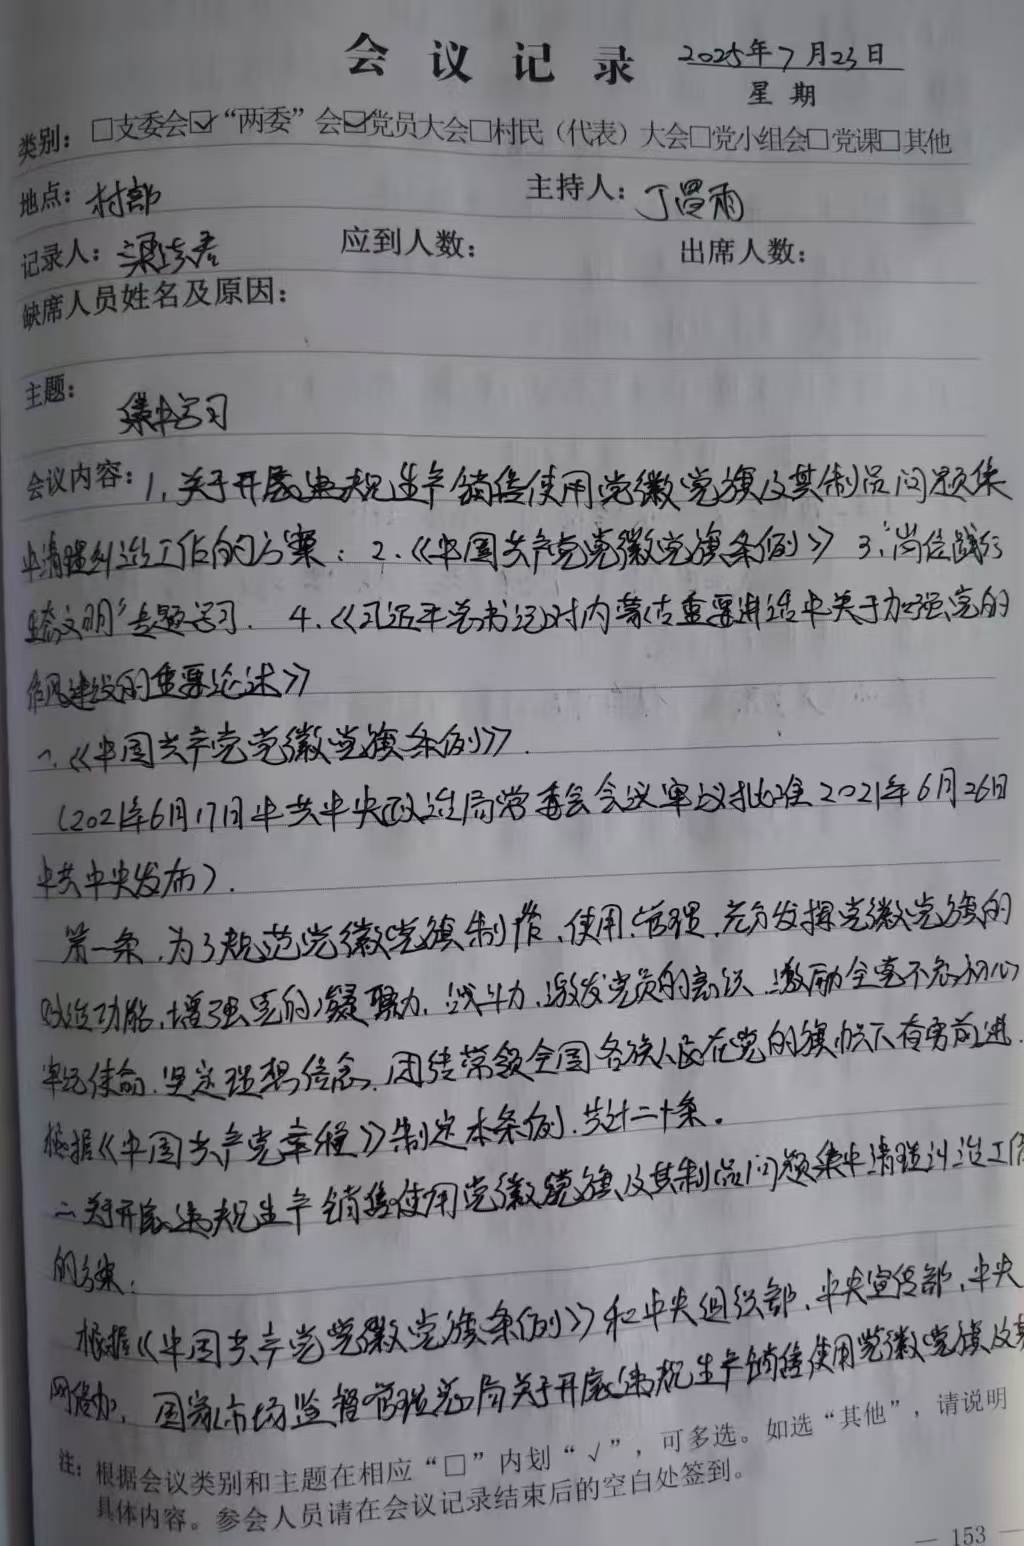 会议记录 2025年7月23日
星期
类别：□支委会☑“两委”会☑党员大会□村民（代表）大会□党小组会□党课□其他
地点：村部 主持人：丁昱雨
记录人：梁 应到人数： 出席人数：
缺席人员姓名及原因：
主题：
集中学习
会议内容：1、关于开展违规生产销售使用党徽党旗及其制品问题集
中清理纠治工作的方案：2.《中国共产党党徽党旗条例》3.“岗位践行
文明”专题学习. 4.《习近平总书记对内蒙古重要讲话中关于加强党的
作风建设的重要论述》
一.《中国共产党党徽党旗条例》.
（2021年6月17日中共中央政治局常委会会议审议批准2021年6月26日
中共中央发布）.
第一条.为了规范党徽党旗制作、使用、管理，充分发挥党徽党旗的
政治功能，增强党的凝聚力、战斗力，激发党员的意识，激励全党不忘初心
牢记使命，坚定理想信念，团结带领全国各族人民在党的旗帜下奋勇前进.
根据《中国共产党章程》制定本条例.共计二十条。
二.关于开展违规生产销售使用党徽党旗及其制品问题集中清理纠治工作
的方案：
根据《中国共产党党徽党旗条例》和中央组织部、中央宣传部、中央
网信办、国家市场监督管理总局关于开展违规生产销售使用党徽党旗及其
注：根据会议类别和主题在相应“□”内划“√”，可多选。如选“其他”，请说明
具体内容。参会人员请在会议记录结束后的空白处签到。
— 153 —